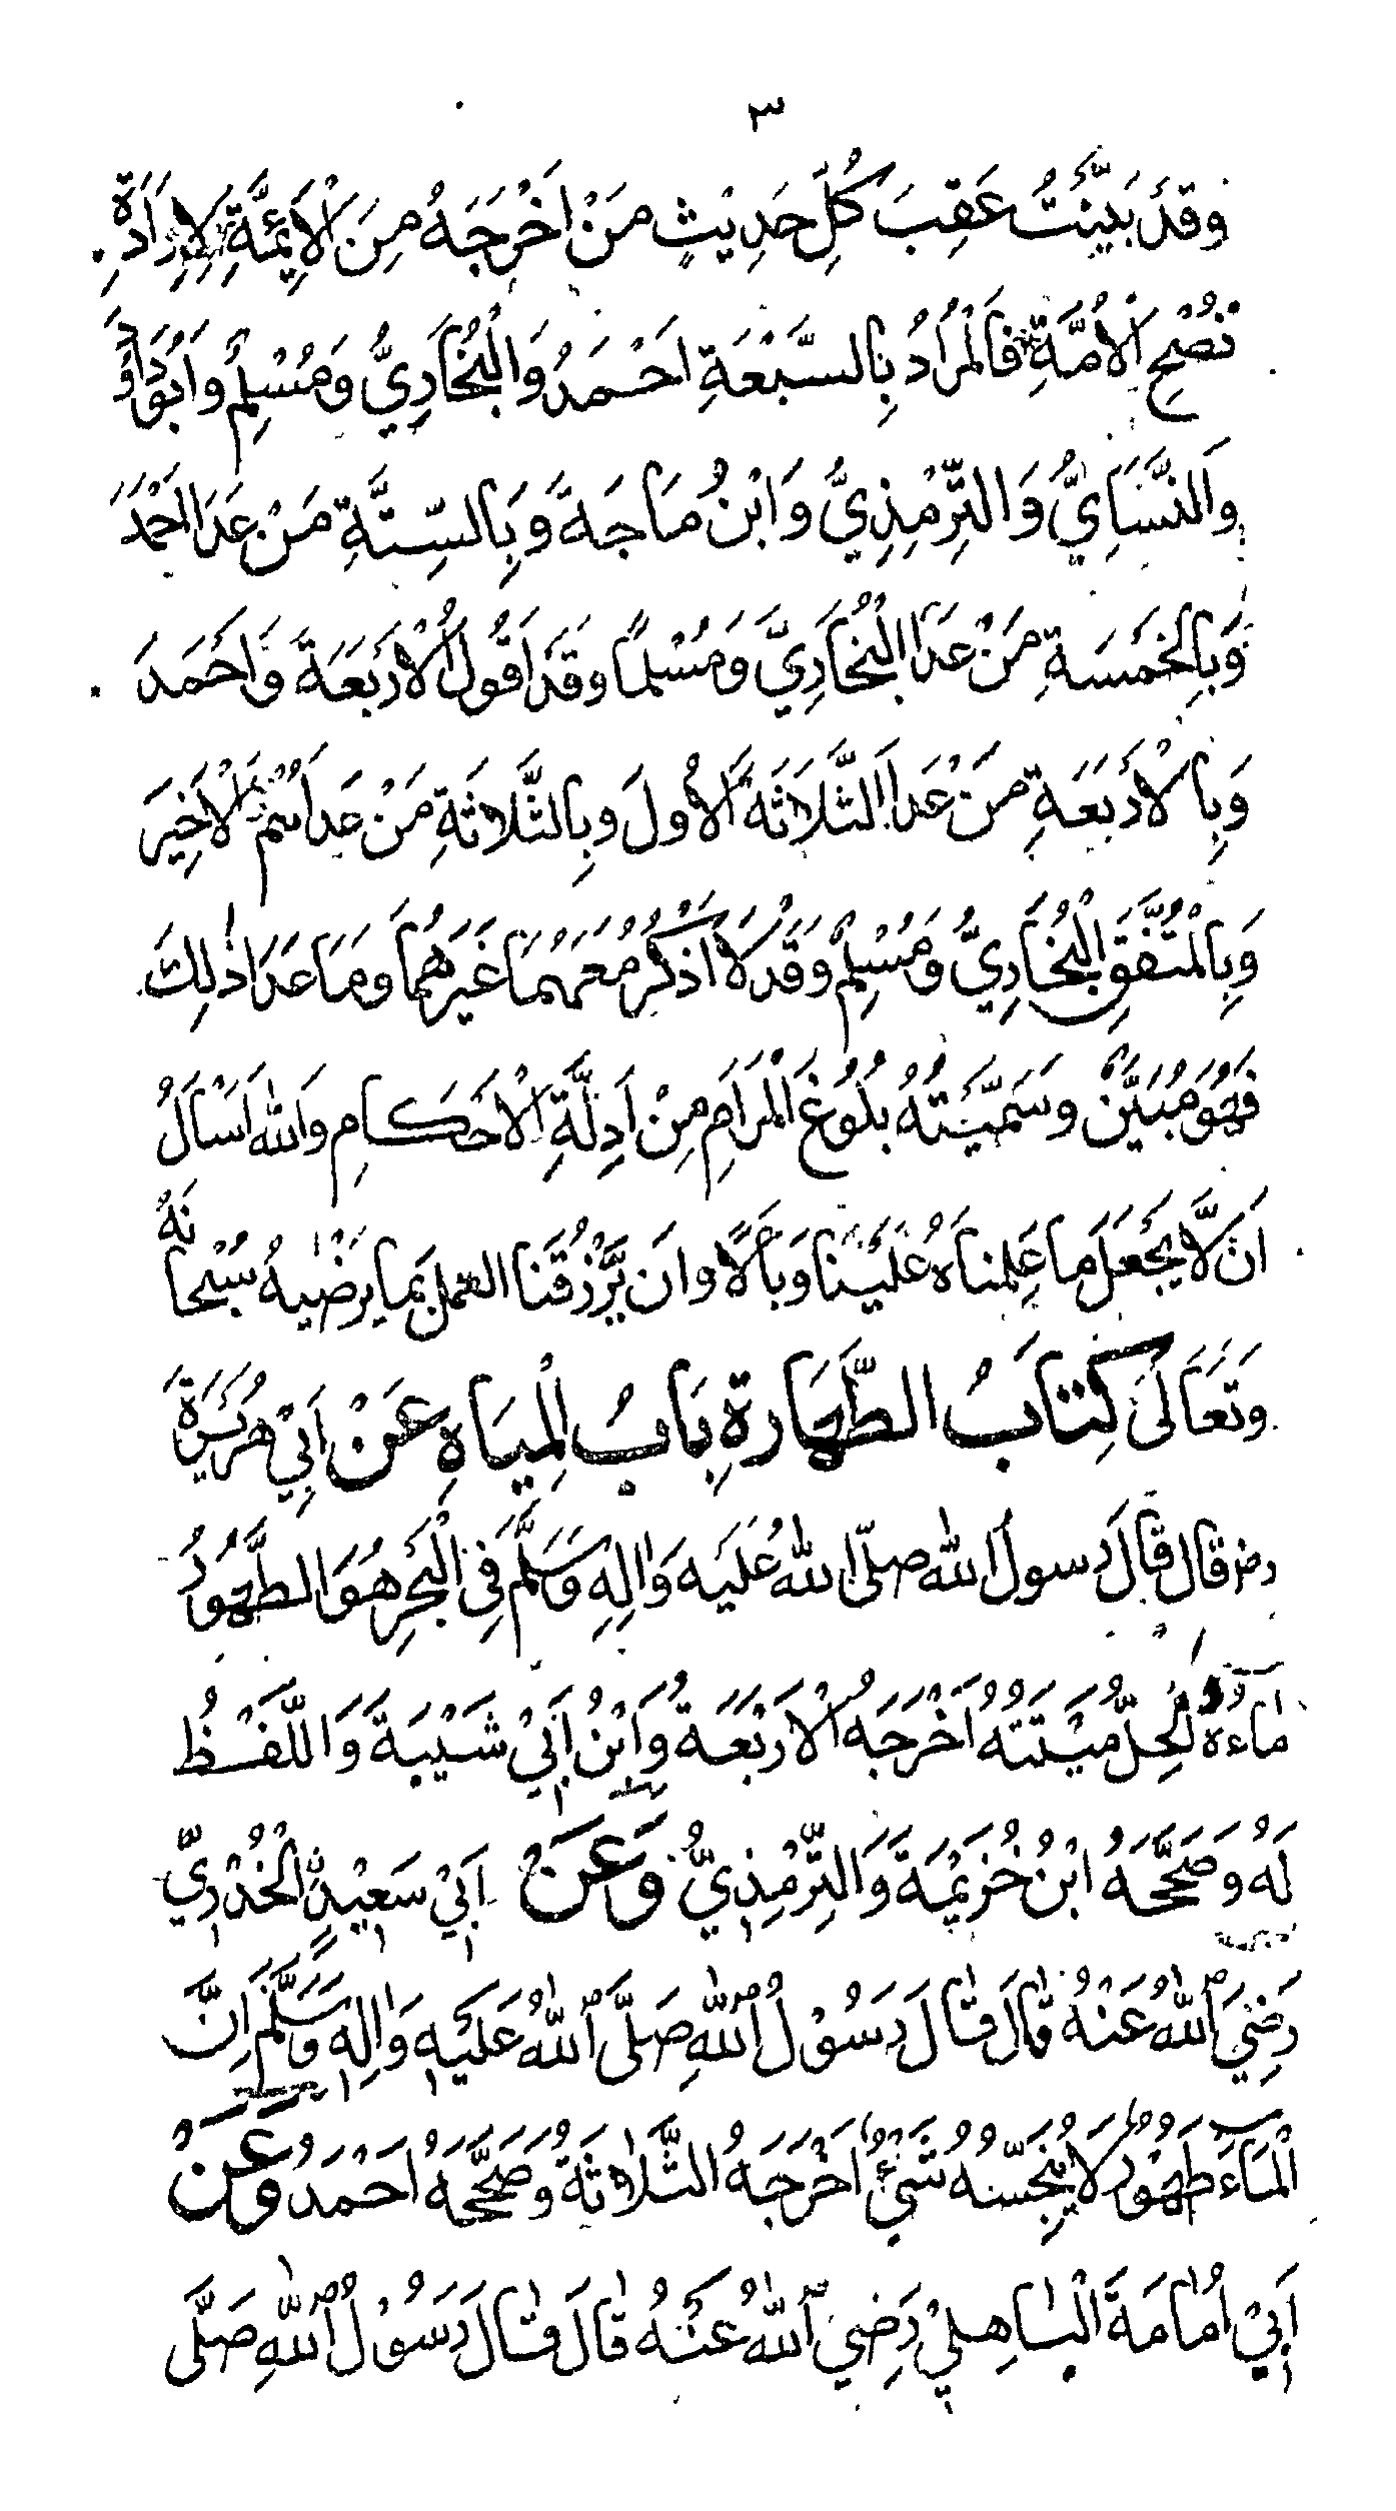 ٣
وَقَدْ بَيَّنْتُ عَقِبَ كُلِّ حَدِيْثٍ مَنْ اَخْرَجَهُ مِنَ الْاَئِمَّةِ لِاِرَادَةِ
نُصْحِ الْاُمَّةِ فَالْمُرَادُ بِالسَّبْعَةِ اَحْمَدُ وَالْبُخَارِيُّ وَمُسْلِمٌ وَاَبُوْدَاوُدَ
وَالنَّسَايِيُّ وَالتِّرْمِذِيُّ وَابْنُ مَاجَةَ وَبِالسِّتَّةِ مَنْ عَدَا اَحْمَدَ
وَبِالْخَمْسَةِ مَنْ عَدَا الْبُخَارِيَّ وَمُسْلِمًا وَقَدْ اَقُوْلُ الْاَرْبَعَةُ وَاَحْمَدُ
وَبِالْاَرْبَعَةِ مَنْ عَدَا الثَّلَاثَةَ الْاُوَلَ وَبِالثَّلَاثَةِ مَنْ عَدَاهُمْ الْاَخِيْرَ
وَبِالْمُتَّفَقِ الْبُخَارِيُّ وَمُسْلِمٌ وَقَدْ لَا اَذْكُرُ مَعَهُمَا غَيْرَهُمَا وَمَا عَدَا ذٰلِكَ
فَهُوَ مُبَيَّنٌ وَسَمَّيْتُهُ بُلُوْغَ الْمَرَامِ مِنْ اَدِلَّةِ الْاَحْكَامِ وَاللهَ اَسْاَلُ
اَنْ لَّا يَجْعَلَ مَا عَلِمْنَاهُ عَلَيْنَا وَبَالًا وَاَنْ يَّرْزُقَنَا الْعَمَلَ بِمَا يَرْضٰيهُ سُبْحَانَهُ
وَتَعَالٰى كِتَابُ الطَّهَارَةِ بَابُ الْمِيَاهِ عَنْ اَبِيْ هُرَيْرَةَ
رض قَالَ قَالَ رَسُولُ اللهِ صَلَّى اللهُ عَلَيْهِ وَاٰلِهِ وَسَلَّمَ فِي الْبَحْرِ هُوَ الطَّهُوْرُ
مَاءُهُ لْحِلُّ مَيْتَتُهُ اَخْرَجَهُ الْاَرْبَعَةُ وَابْنُ اَبِيْ شَيْبَةَ وَاللَّفْظُ
لَهُ وَصَحَّحَهُ ابْنُ خُزَيْمَةَ وَالتِّرْمِذِيُّ وَعَنْ اَبِيْ سَعِيْدٍ الْخُدْرِيِّ
رَضِيَ اللهُ عَنْهُ قَالَ قَالَ رَسُوْلُ اللهِ صَلَّى اللهُ عَلَيْهِ وَاٰلِهِ وَسَلَّمَ اِنَّ
الْمَاءَ طَهُوْرٌ لَا يُنَجِّسُهُ شَيْءٌ اَخْرَجَهُ الثَّلَاثَةُ وَصَحَّحَهُ اَحْمَدُ وَعَنْ
اَبِيْ اُمَامَةَ الْبَاهِلِيْ رَضِيَ اللهُ عَنْهُ قَالَ قَالَ رَسُوْلُ اللهِ صَلَّى